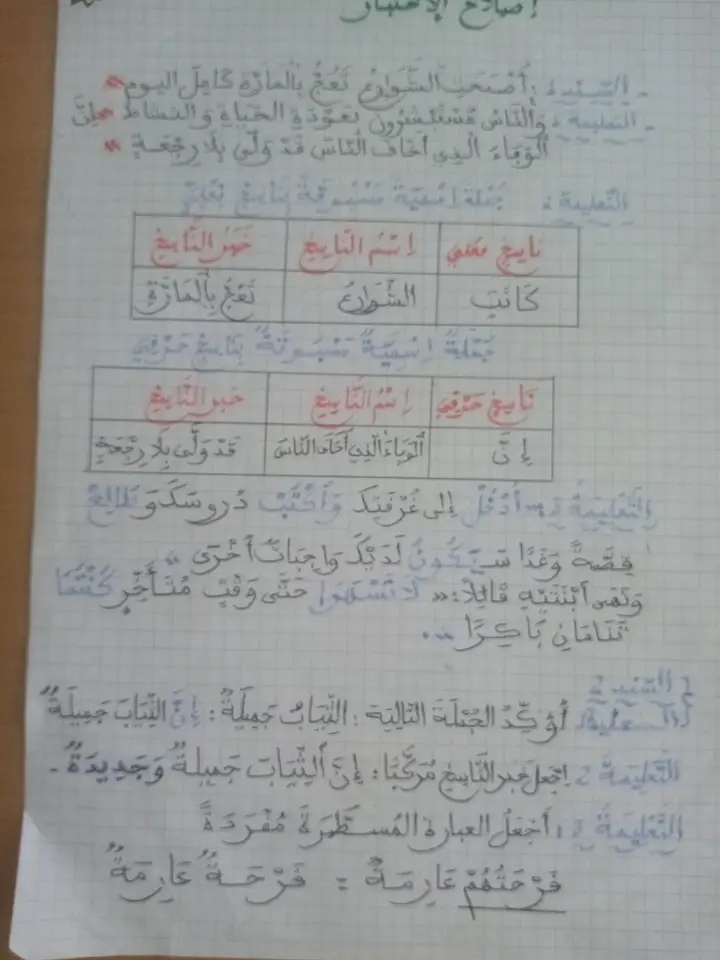 إصلاح الاختبار
- السند 1: أَصْبَحَتِ الشَّوَارِعُ تَعُجُّ بِالْمَارَّةِ كَامِلَ اليوم
- التعليمة 1: وَالنَّاسُ مُسْتَبْشِرُونَ بِعَوْدَةِ الحَيَاةِ وَالنشَاطِ " إِنَّ
الْوَبَاءَ الَّذِي أَخَافَ النَّاسَ قَدْ وَلَّى بِلَا رِجْعَةٍ "
التعليمة 2 جُمْلَة اسْمِيَّة مَسْبُوقَة بِنَاسِخ فِعْلِي
نَاسِخ فعلي اِسْمُ النَّاسِخِ خَبَرُ النَّاسِخِ
كَانَتِ الشَّوَارِعُ تَعُجُّ بِالْمَارَّةِ
جُمْلَةٌ اسْمِيَّةٌ مَسْبُوقَةٌ بِنَاسِخٍ حَرْفِي
نَاسِخ حَرْفِي اِسْمُ النَّاسِخِ خبر النَّاسِخِ
إِنَّ الْوَبَاءَ الَّذِي أَخَافَ النَّاسَ قَدْ وَلَّى بِلَا رِجْعَةٍ
التَّعْلِيمَة اُدْخُلْ إِلى غُرْفَتِكَ وَاكْتُبْ دُرُوسَكَ وَطَالِعْ
قِصَّةً وَغَدًا سَيَكُونُ لَدَيْكَ وَاجِبَاتٌ أُخْرَى "
وَنَهَى ابْنَتَيْهِ قَائِلًا: " لَا تَسْهَرَا حَتَّى وَقْتٍ مُتَأَخِّرٍ كُنْتُمَا
تَنَامَانِ بَاكِرًا ".
السند 2
التعليمة أُؤَكِّدُ الجُمْلَةَ التَّالِيَةَ: الثِّيَابُ جَمِيلَةٌ: إِنَّ الثِّيَابَ جَمِيلَةٌ
التَّعْلِيمَة 2 اِجْعَل خَبَر النَّاسِخِ مُرَكَّبًا: إِنَّ الثِّيَابَ جَمِيلَةٌ وَجَدِيدَةٌ.
التَّعْلِيمَة أَجْعَلُ العبارة المُسَطَّرَةَ مُفْرَدَةً
فَرْحَتُهُمْ عَارِمَةٌ = فَرْحَةٌ عَارِمَةٌ